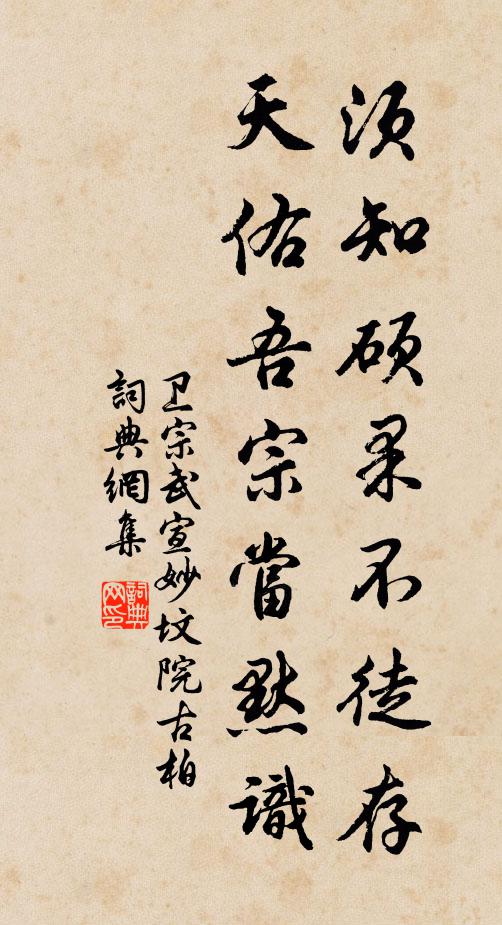 須知碩果不徒存
天佑吾宗當默識
卫宗武宣妙坟院古柏
詞典網集
詞典网印